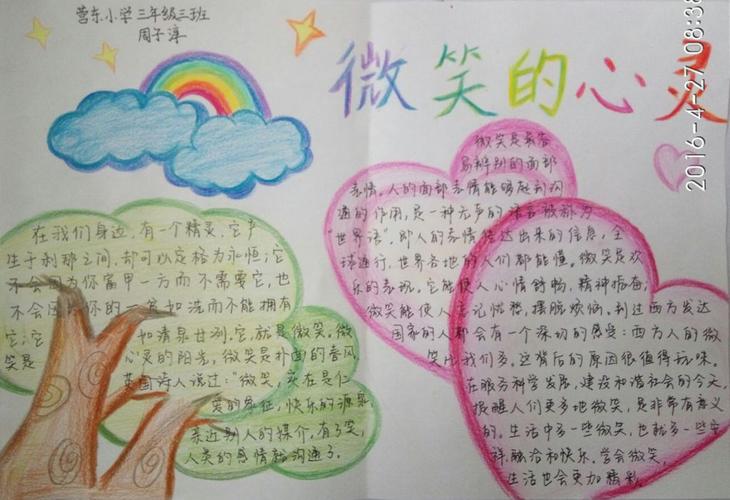 营东小学三年级三班
周子淳
微笑的心灵
2016-4-27 08:38
在我们身边,有一个精灵,它产
生于刹那之间,却可以定格为永恒;它
不会因为你富甲一方而不需要它,也
不会因为你的一贫如洗而不能拥有
它;它如清泉甘冽。它,就是微笑。微
笑是心灵的阳光,微笑是扑面的春风,
英国诗人说过:“微笑,实在是仁
爱的象征,快乐的源泉,
亲近别人的媒介,有了笑,
人类的感情就沟通了。
微笑是最容
易辨别的面部
表情。人的面部表情能够起到沟
通的作用,是一种无声的语言被称为
“世界语”。即人的表情传达出来的信息,全
球通行,世界各地的人们都能懂。微笑是欢
乐的表现,它能使人心情舒畅,精神振奋;
微笑能使人忘记忧愁,摆脱烦恼。到过西方发达
国家的人都会有一个深切的感受:西方人的微
笑比我们多。这背后的原因很值得玩味。
在眼方科学发展,建设和谐社会的今天,
提醒人们更多地微笑,是非常有意义
的。生活中多一些微笑,也就多一些安
祥、融洽和快乐。学会微笑,
生活也会更加精彩。